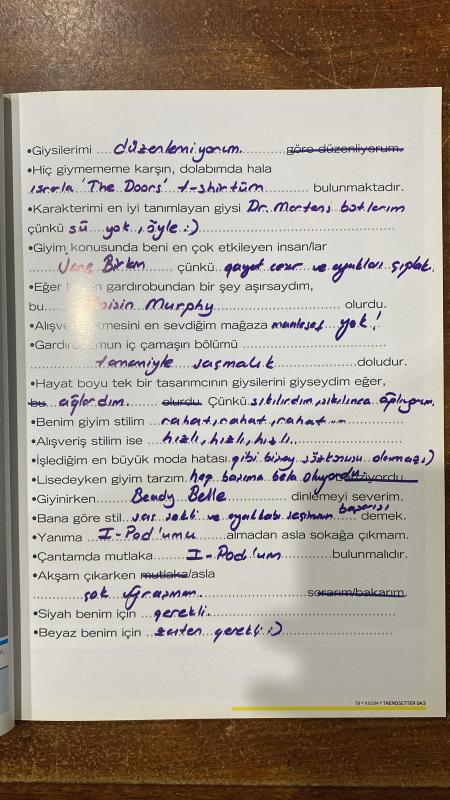 •Giysilerimi ....düzenlemiyorum............göre düzenliyorum.
•Hiç giymememe karşın, dolabımda hala
ısrarla 'The Doors' t-shirtüm............ bulunmaktadır.
•Karakterimi en iyi tanımlayan giysi Dr. Martens botlarım
çünkü sü yok, öyle :)
•Giyim konusunda beni en çok etkileyen insan/lar
......Jane Birkin ...... çünkü..gayet cesur ve ayakları çıplak.
•Eğer gardırobundan bir şey aşırsaydım,
bu.... Roisin Murphy............................ olurdu.
•Alışveriş etmesini en sevdiğim mağaza maalesef yok!
•Gardırobumun iç çamaşırı bölümü ..............................
............tamamiyle saçmalık.....................doludur.
•Hayat boyu tek bir tasarımcının giysilerini giyseydim eğer,
bu ağlardım. olurdu. Çünkü sıkılırdım, sıkılınca ağlıyorum.
•Benim giyim stilim ...rahat, rahat, rahat...
•Alışveriş stilim ise ....hızlı, hızlı, hızlı...
•İşlediğim en büyük moda hatası gibi birşey sözkonusu olamaz :)
•Lisedeyken giyim tarzım hep başıma bela oluyordu
•Giyinirken.........Bendy Belle.............. dinlemeyi severim.
•Bana göre stil...saç şekli ve ayakkabı seçiminin başarısı demek.
•Yanıma ...I-Pod'umu........almadan asla sokağa çıkmam.
•Çantamda mutlaka........I-Pod'um............bulunmalıdır.
•Akşam çıkarken mutlaka/asla
............çok uğraşmam............................sorarım/bakarım.
•Siyah benim için ..gerekli..
•Beyaz benim için ..zaten gerekli :)
78 • KASIM • TRENDSETTER 043